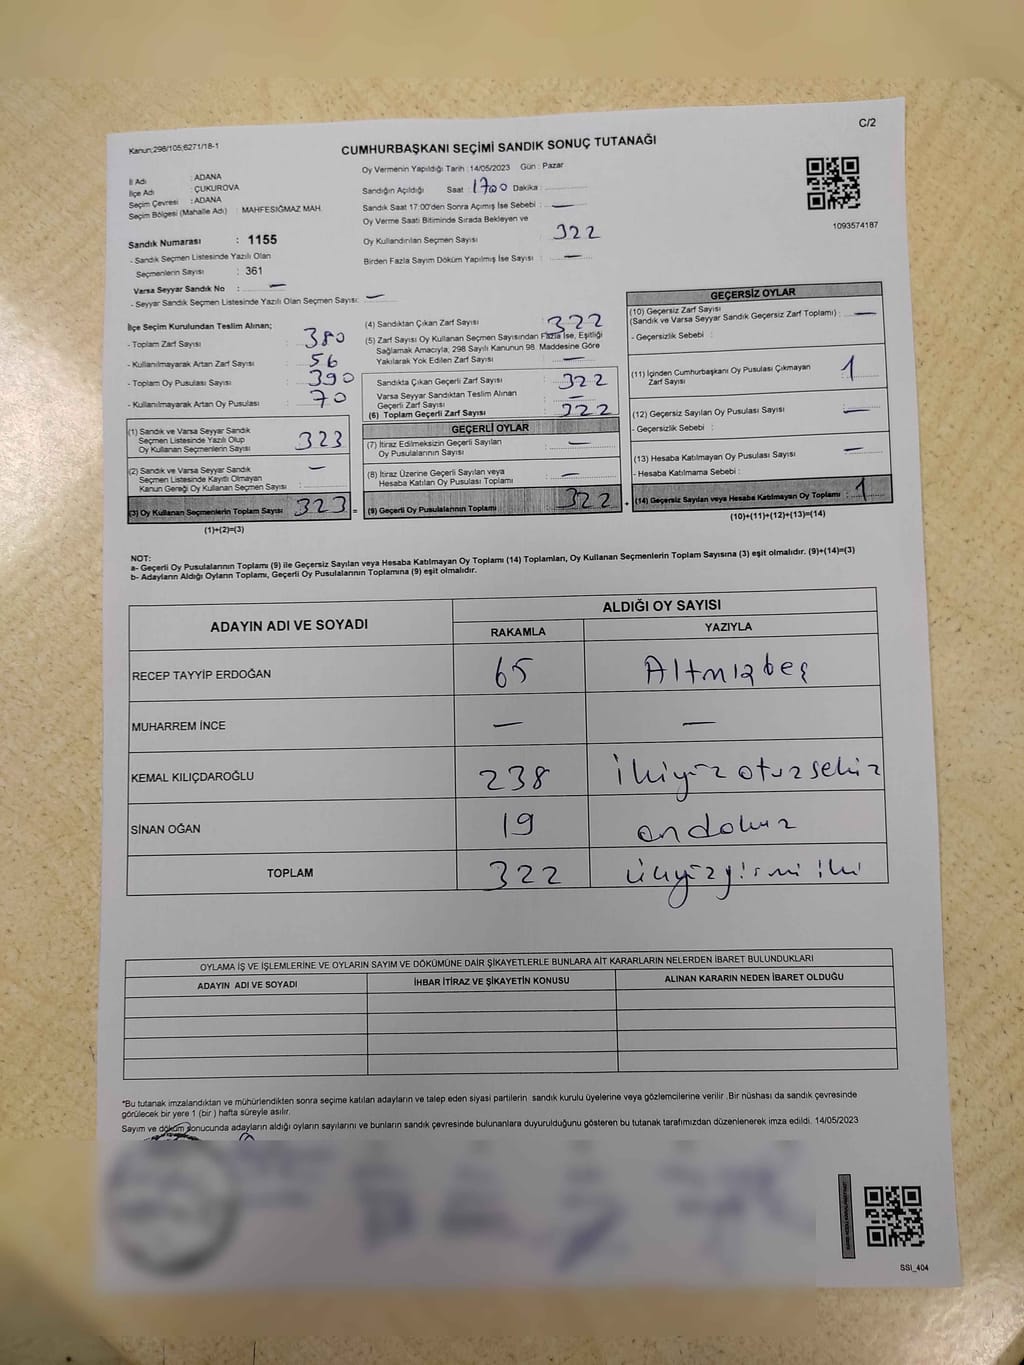 C/2
Kanun;298/105;6271/18-1
CUMHURBAŞKANI SEÇİMİ SANDIK SONUÇ TUTANAĞI
İl Adı : ADANA
İlçe Adı : ÇUKUROVA
Seçim Çevresi : ADANA
Seçim Bölgesi (Mahalle Adı) : MAHFESIĞMAZ MAH.
Sandık Numarası : 1155
- Sandık Seçmen Listesinde Yazılı Olan
Seçmenlerin Sayısı : 361
Varsa Seyyar Sandık No : —
- Seyyar Sandık Seçmen Listesinde Yazılı Olan Seçmen Sayısı: —
Oy Vermenin Yapıldığı Tarih : 14/05/2023 Gün : Pazar
Sandığın Açıldığı Saat : 1700 Dakika :
Sandık Saat 17:00'den Sonra Açımış İse Sebebi : —
Oy Verme Saati Bitiminde Sırada Bekleyen ve
Oy Kullandırılan Seçmen Sayısı 322
Birden Fazla Sayım Döküm Yapılmış İse Sayısı : —
1093574187
İlçe Seçim Kurulundan Teslim Alınan;
- Toplam Zarf Sayısı : 380
- Kullanılmayarak Artan Zarf Sayısı : 56
- Toplam Oy Pusulası Sayısı : 390
- Kullanılmayarak Artan Oy Pusulası : 70
(1) Sandık ve Varsa Seyyar Sandık
Seçmen Listesinde Yazılı Olup
Oy Kullanan Seçmenlerin Sayısı : 323
(2) Sandık ve Varsa Seyyar Sandık
Seçmen Listesinde Kayıtlı Olmayan
Kanun Gereği Oy Kullanan Seçmen Sayısı : —
(3) Oy Kullanan Seçmenlerin Toplam Sayısı : 323 =
(1)+(2)=(3)
(4) Sandıktan Çıkan Zarf Sayısı : 322
(5) Zarf Sayısı Oy Kullanan Seçmen Sayısından Fazla İse, Eşitliği
Sağlamak Amacıyla, 298 Sayılı Kanunun 98. Maddesine Göre
Yakılarak Yok Edilen Zarf Sayısı : —
Sandıkta Çıkan Geçerli Zarf Sayısı : 322
Varsa Seyyar Sandıktan Teslim Alınan
Geçerli Zarf Sayısı : —
(6) Toplam Geçerli Zarf Sayısı : 322
GEÇERLİ OYLAR
(7) İtiraz Edilmeksizin Geçerli Sayılan
Oy Pusulalarının Sayısı : —
(8) İtiraz Üzerine Geçerli Sayılan veya
Hesaba Katılan Oy Pusulası Toplamı : —
(9) Geçerli Oy Pusulalarının Toplamı : 322 +
GEÇERSİZ OYLAR
(10) Geçersiz Zarf Sayısı
(Sandık ve Varsa Seyyar Sandık Geçersiz Zarf Toplamı) : —
- Geçersizlik Sebebi :
(11) İçinden Cumhurbaşkanı Oy Pusulası Çıkmayan
Zarf Sayısı : 1
(12) Geçersiz Sayılan Oy Pusulası Sayısı : —
- Geçersizlik Sebebi :
(13) Hesaba Katılmayan Oy Pusulası Sayısı : —
- Hesaba Katılmama Sebebi :
(14) Geçersiz Sayılan veya Hesaba Katılmayan Oy Toplamı : 1
(10)+(11)+(12)+(13)=(14)
NOT:
a- Geçerli Oy Pusulalarının Toplamı (9) ile Geçersiz Sayılan veya Hesaba Katılmayan Oy Toplamı (14) Toplamları, Oy Kullanan Seçmenlerin Toplam Sayısına (3) eşit olmalıdır. (9)+(14)=(3)
b- Adayların Aldığı Oyların Toplamı, Geçerli Oy Pusulalarının Toplamına (9) eşit olmalıdır.
ADAYIN ADI VE SOYADI
ALDIĞI OY SAYISI
RAKAMLA YAZIYLA
RECEP TAYYİP ERDOĞAN 65 Altmışbeş
MUHARREM İNCE — —
KEMAL KILIÇDAROĞLU 238 İkiyüz otuz sekiz
SİNAN OĞAN 19 ondokuz
TOPLAM 322 üçyüzyirmi iki
OYLAMA İŞ VE İŞLEMLERİNE VE OYLARIN SAYIM VE DÖKÜMÜNE DAİR ŞİKAYETLERLE BUNLARA AİT KARARLARIN NELERDEN İBARET BULUNDUKLARI
ADAYIN ADI VE SOYADI İHBAR İTİRAZ VE ŞİKAYETİN KONUSU ALINAN KARARIN NEDEN İBARET OLDUĞU
*Bu tutanak imzalandıktan ve mühürlendikten sonra seçime katılan adayların ve talep eden siyasi partilerin sandık kurulu üyelerine veya gözlemcilerine verilir .Bir nüshası da sandık çevresinde
görülecek bir yere 1 (bir ) hafta süreyle asılır.
Sayım ve döküm sonucunda adayların aldığı oyların sayılarını ve bunların sandık çevresinde bulunanlara duyurulduğunu gösteren bu tutanak tarafımızdan düzenlenerek imza edildi. 14/05/2023
SSI_404